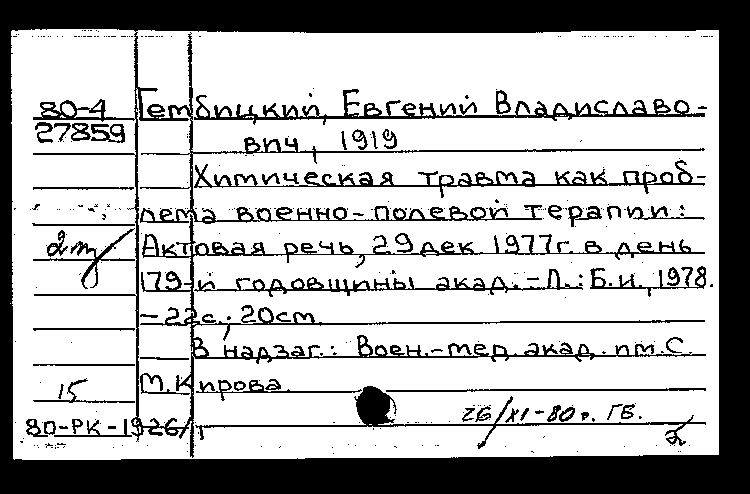 80-4 Гембицкий, Евгений Владиславо-
27859 вич, 1919
Химическая травма как проб-
лема военно-полевой терапии:
Актовая речь, 29 дек 1977г. в день
179-й годовщины акад. -Л.: Б.и., 1978.
-22с.; 20см.
В надзаг.: Воен.-мед. акад. им. С.
15 М. Кирова.
26/XI-80г. ГБ.
80-РК-1926/1